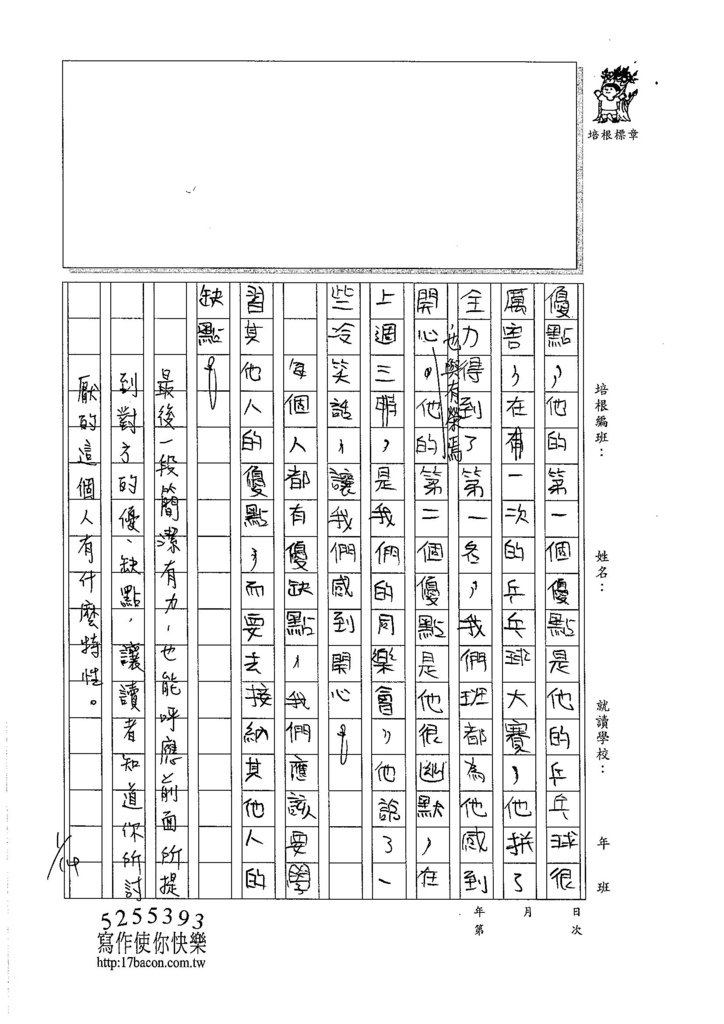 培根標章
培根編班：
姓名：
就讀學校：
年
班
優點，他的第一個優點是他的乒乓球很
厲害，在有一次的乒乓球大賽，他拼了
全力得到了第一名，我們班都為他感到
也與有榮焉
開心。他的第二個優點是他很幽默，在
上週三時，是我們的同樂會，他說了一
些冷笑話，讓我們感到開心。
每個人都有優缺點，我們應該要學
習其他人的優點，而要去接納其他人的
缺點。
最後一段簡潔有力，也能呼應前面所提
到對方的優、缺點，讓讀者知道你所討
厭的這個人有什麼特性。
1/14
年
月
日
第
次
5255393
寫作使你快樂
http:17bacon.com.tw